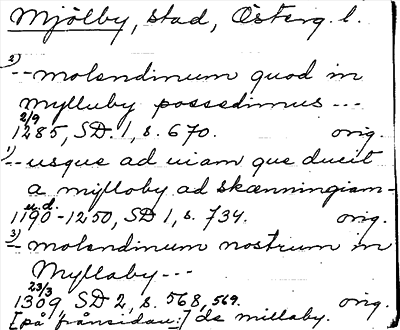 Mjölby, stad, Österg. l.
2) -- molendinum quod in
mylluby possedimus ---
2/9
1285, SD. 1, s. 670. orig.
1) -- usque ad uiam que ducit
a mylloby ad skænningiam-
u.d.
1190-1250, SD 1, s. 734. orig.
3) - molendinum nostrum in
Myllaby ---
23/3
1309 SD 2, s. 568, 569. orig.
[på frånsidan:] de millaby.